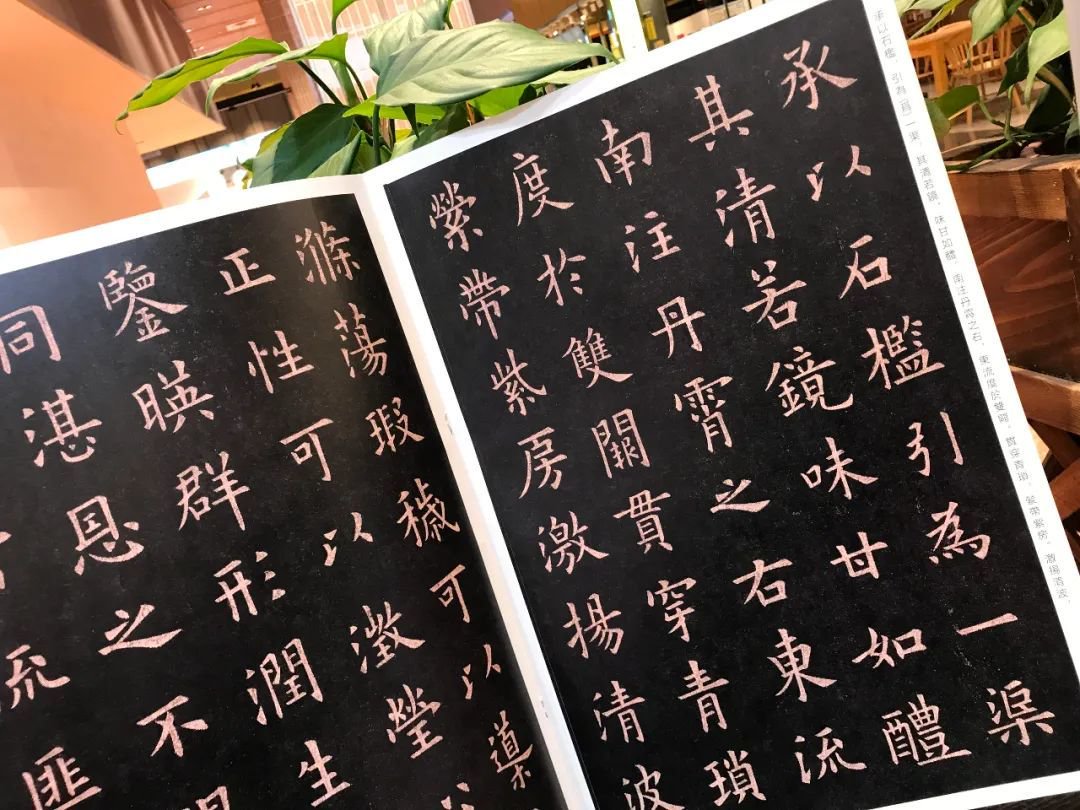 承以石檻，引為（爲）一渠，其清若鏡，味甘如醴，南注丹霄之右，東流度於雙闕，貫穿青瑣，縈帶紫房，激揚清波，
承以石檻引為一渠
其清若鏡味甘如醴
南注丹霄之右東流
度於雙闕貫穿青瑣
縈帶紫房激揚清波
滌蕩瑕穢可以導
正性可以澂瑩
鑒暎群形潤生
同湛恩之不
流匪